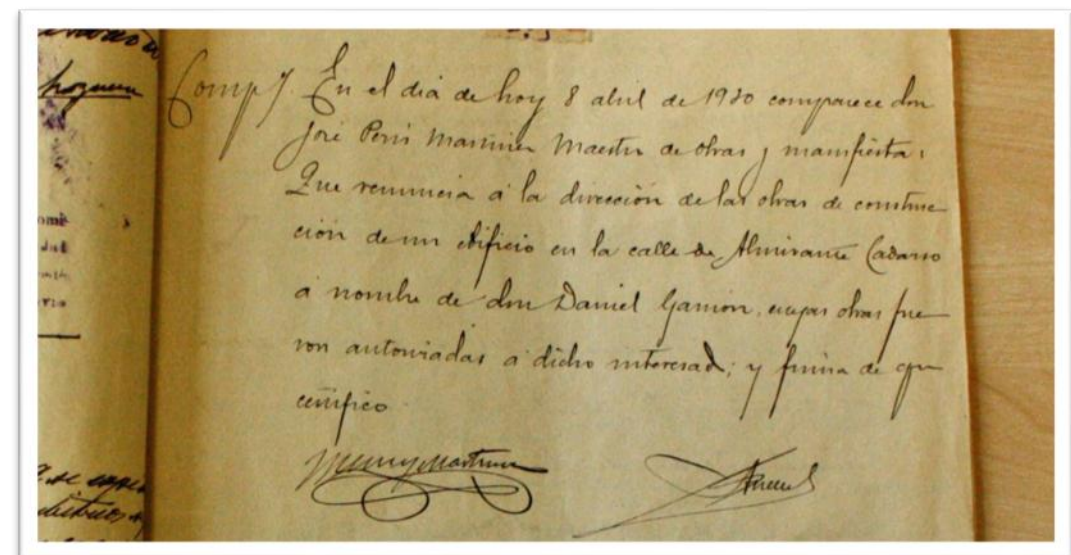 Comp/. En el dia de hoy 8 abril de 1930 comparece don
José Peris Martinez Maestro de obras y manifiesta:
Que renuncia á la dirección de las obras de construc
ción de un edificio en la calle de Almirante Cadarso
á nombre de don Daniel cuyas obras fue
ron autorizadas á dicho interesado; y firma de que
certifico.